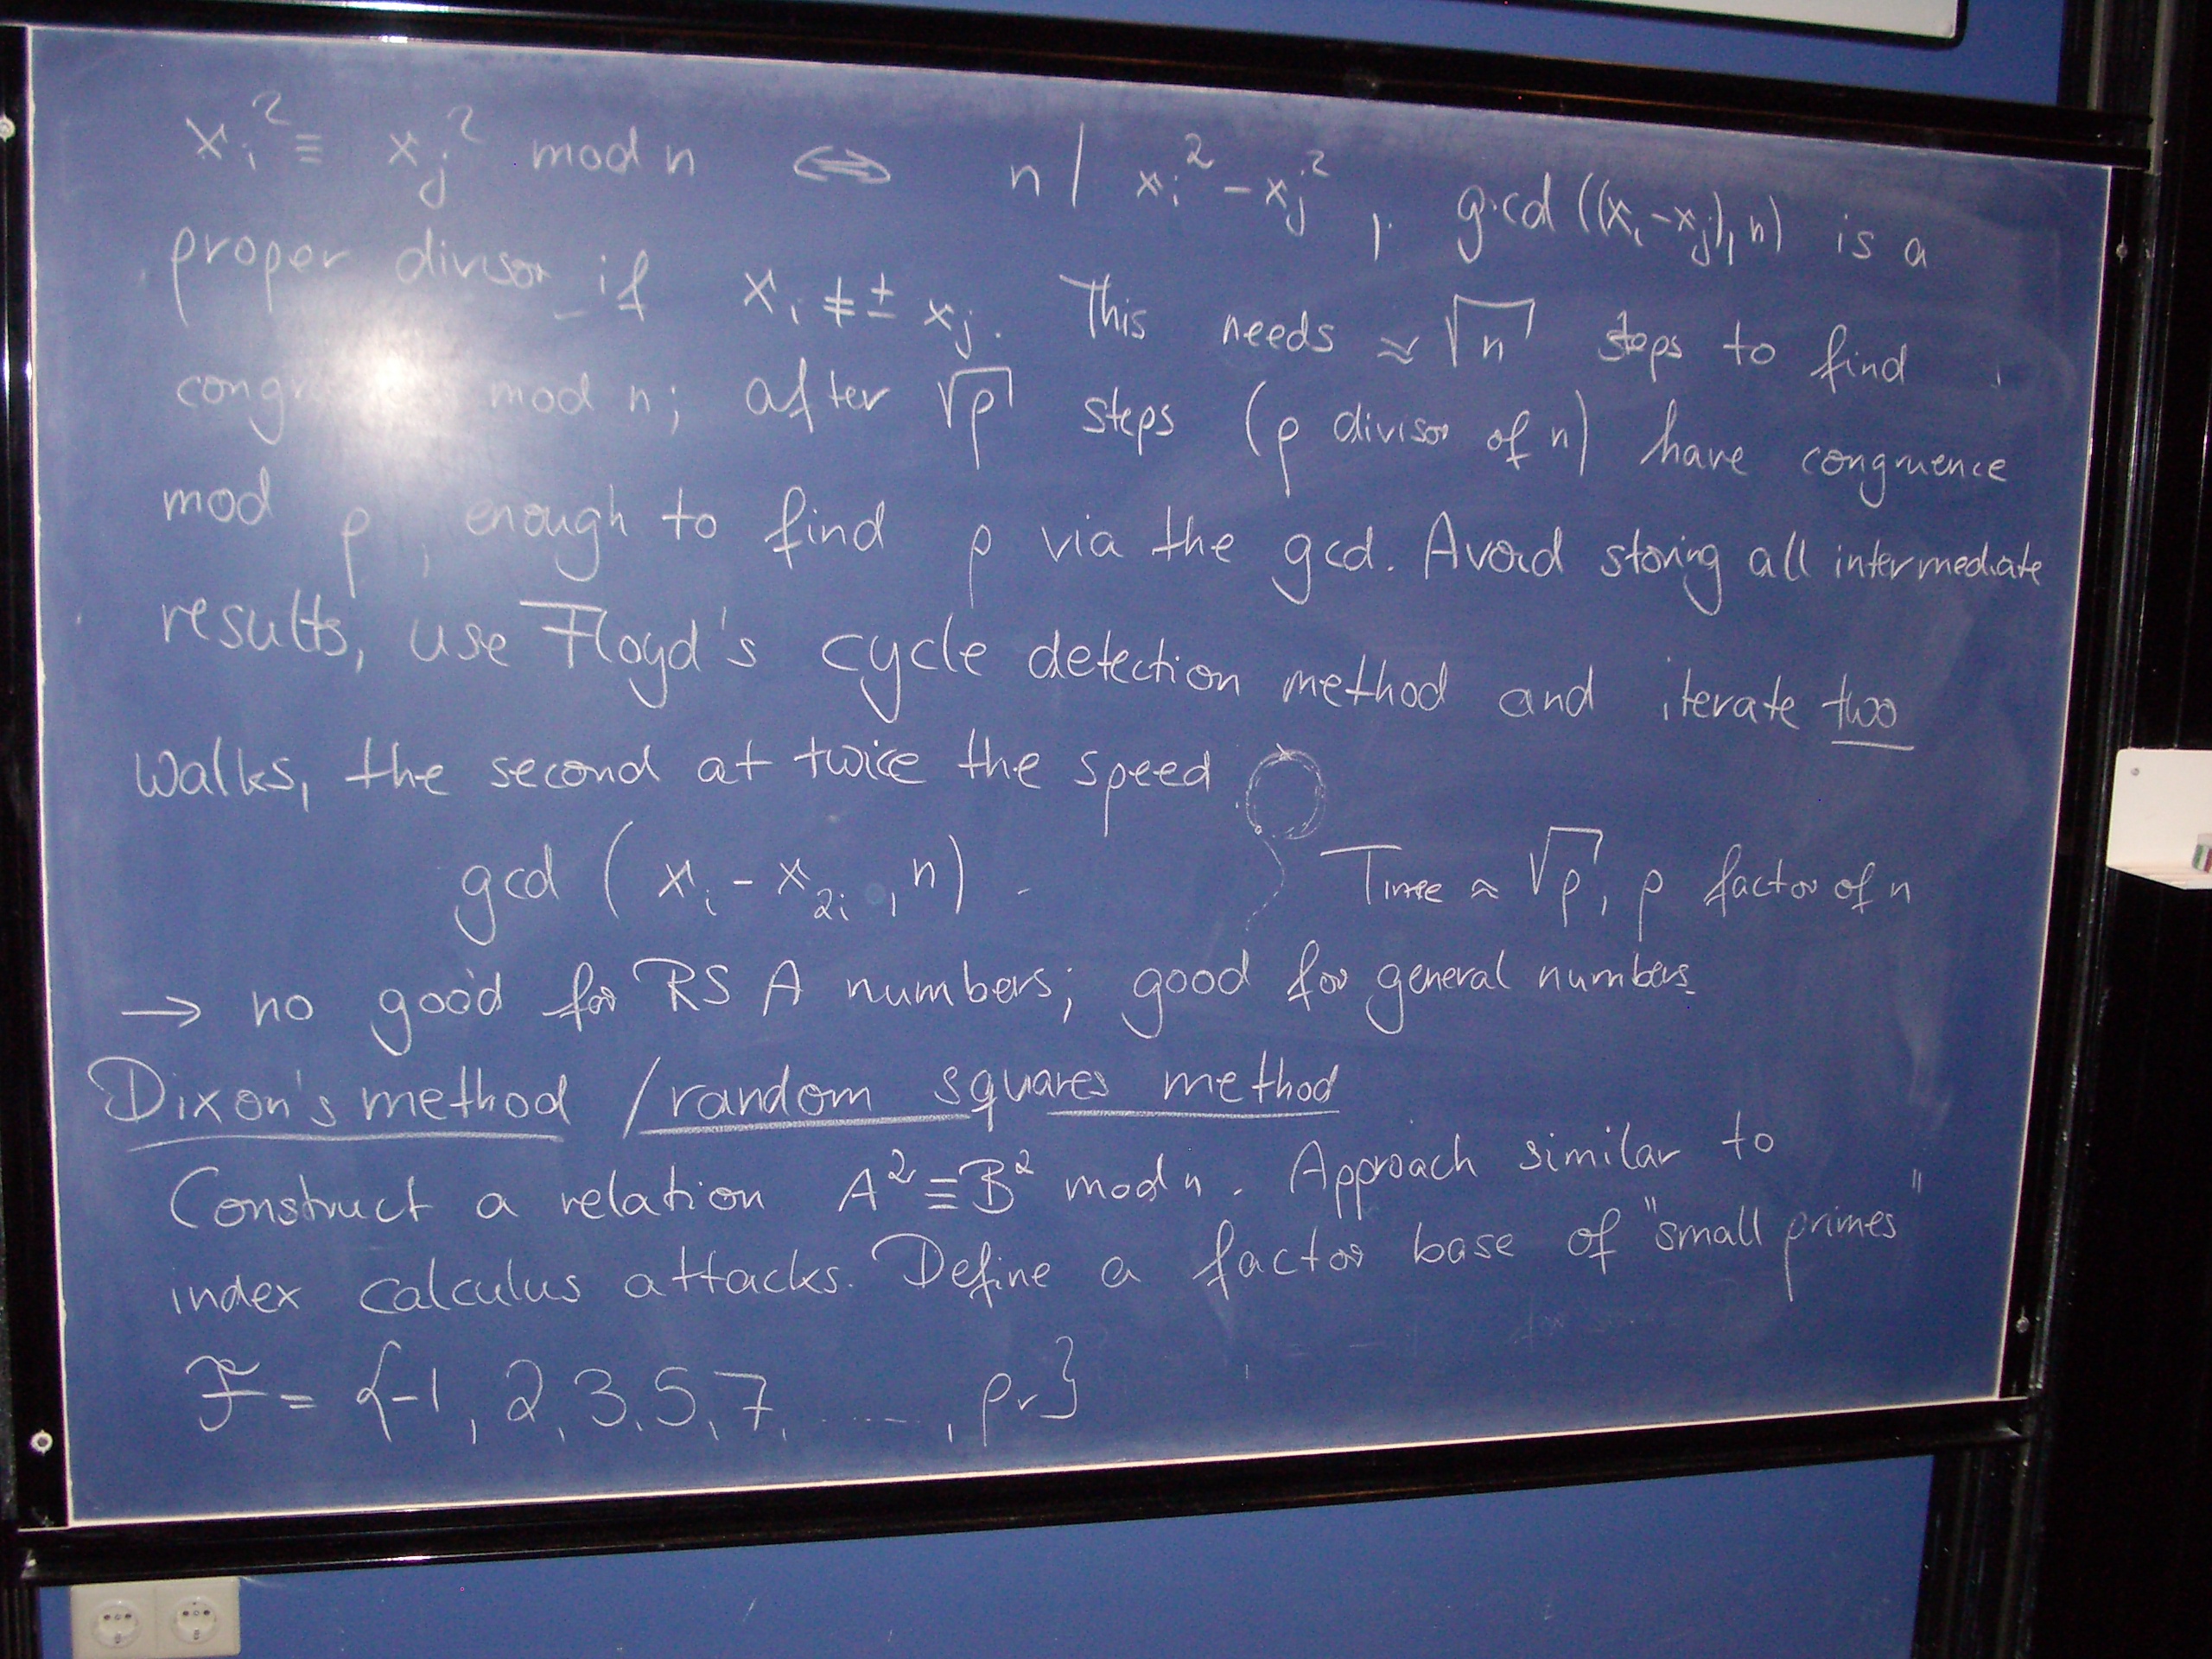 xᵢ² ≡ xⱼ² mod n ⇔ n | xᵢ² - xⱼ², gcd((xᵢ-xⱼ), n) is a
proper divisor if xᵢ ≠ ± xⱼ. This needs ≈ √n steps to find
mod n; after √p steps (p divisor of n) have congruence
mod p, enough to find p via the gcd. Avoid storing all intermediate
results, use Floyd's cycle detection method and iterate two
walks, the second at twice the speed.
gcd (xᵢ - x₂ᵢ, n)
Time ≈ √p, p factor of n
→ no good for RSA numbers; good for general numbers.
Dixon's method / random squares method
Construct a relation A² ≡ B² mod n. Approach similar to
index calculus attacks. Define a factor base of "small primes"
F = {-1, 2, 3, 5, 7, ....., pᵣ}